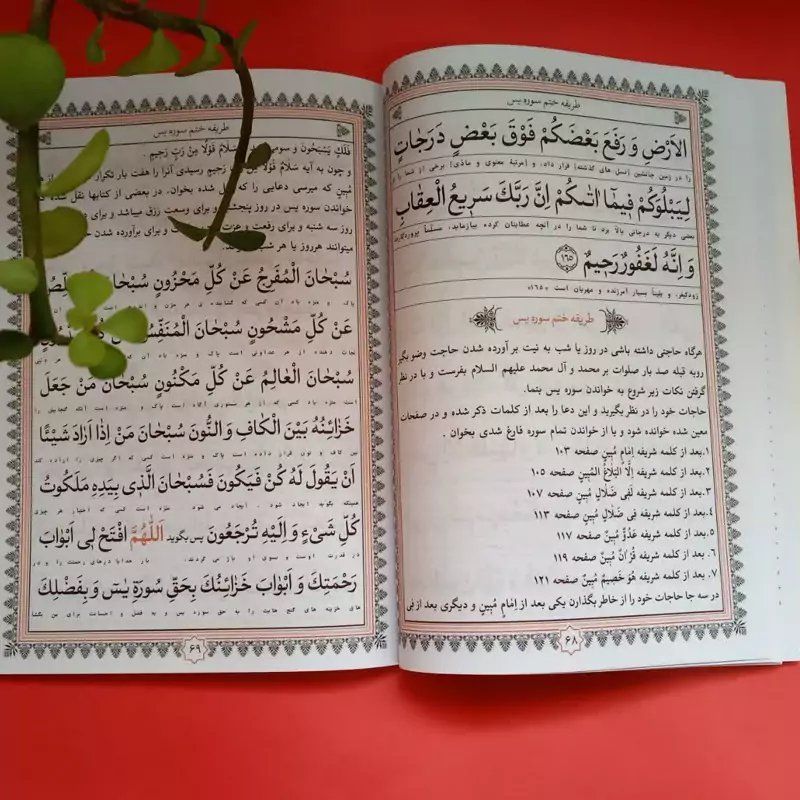 طریقه ختم سوره یس
الاَرْضِ وَ رَفَعَ بَعْضَكُمْ فَوْقَ بَعْضٍ دَرَجٰاتٍ
را در زمین جانشین (نسل های گذشته) قرار داد، و (مرتبه معنوی و مادّی) برخی از شما را بر
لِيَبْلُوَكُمْ فِيمٰا اٰتٰىكُمْ اِنَّ رَبَّكَ سَرِيعُ الْعِقٰابِ
بعضی دیگر به درجاتی بالا برد تا شما را در آنچه عطایتان کرده بیازماید، مسلماً پروردگارت
وَ اِنَّهُ لَغَفُورٌ رَحِيمٌ ۱۶۵
زودکیفر، و یقیناً بسیار آمرزنده و مهربان است «۱۶۵»
طریقه ختم سوره یس
هرگاه حاجتی داشته باشی در روز یا شب به نیت بر آورده شدن حاجت وضو بگیر
روبه قبله صد بار صلوات بر محمد و آل محمد علیهم السلام بفرست و با در نظر
گرفتن نکات زیر شروع به خواندن سوره یس بنما.
حاجات خود را در نظر بگیرید و این دعا را بعد از کلمات ذکر شده و در صفحات
معین شده خوانده شود و با از خواندن تمام سوره فارغ شدی بخوان .
۱.بعد از کلمه شریفه اِمٰامٍ مُبٖينٍ صفحه ۱۰۳
۲.بعد از کلمه شریفه اِلَّا الْبَلٰاغُ الْمُبٖينُ صفحه ۱۰۵
۳.بعد از کلمه شریفه لَفٖى ضَلٰالٍ مُبٖينٍ صفحه ۱۰۷
۴.بعد از کلمه شریفه فٖى ضَلٰالٍ مُبٖينٍ صفحه ۱۱۳
۵.بعد از کلمه شریفه عَدُوٌّ مُبٖينٌ صفحه ۱۱۷
۶. بعد از کلمه شریفه قُرْاٰنٌ مُبٖينٌ صفحه ۱۱۹
۷. بعد از کلمه شریفه هُوَ خَصٖيمٌ مُبٖينٌ صفحه ۱۲۱
در سه جا حاجات خود را از خاطر بگذارن یکی بعد از اِمٰامٍ مُبٖينٍ و دیگری بعد از فی
۶۸
طریقه ختم سوره یس
فَلَكٍ يَسْبَحُونَ و سومی سَلٰامٌ قَوْلًا مِنْ رَبٍّ رَحٖيمٍ .
و چون به آیه سَلٰامٌ قَوْلًا مِنْ رَبٍّ رَحٖيمٍ رسیدی آنرا هفت بار تکرار از
مُبٖينٍ که میرسی دعایی را که نقل شده بخوان. در بعضی از کتابها نقل شده که
خواندن سوره یس در روز پنجشنبه و برای وسعت رزق میباشد و برای
روز سه شنبه و برای رفعت و عزت و برای برآورده شدن
میتوانند هرروز یا هر شب
سُبْحٰانَ الْمُفَرِّجِ عَنْ كُلِّ مَحْزُونٍ سُبْحٰانَ
عَنْ كُلِّ مَشْحُونٍ سُبْحٰانَ الْمُنَفِّسِ
سُبْحٰانَ الْعٰالِمِ عَنْ كُلِّ مَكْنُونٍ سُبْحٰانَ مَنْ جَعَلَ
خَزٰائِنُهُ بَيْنَ الْكٰافِ وَالنُّونِ سُبْحٰانَ مَنْ اِذٰا اَرٰادَ شَيْئًا
اَنْ يَقُولَ لَهُ كُنْ فَيَكُونَ فَسُبْحٰانَ الَّذٖى بِيَدِهٖ مَلَكُوتُ
كُلِّ شَیْءٍ وَ اِلَيْهِ تُرْجَعُونَ پس بگوید اَللّٰهُمَّ افْتَحْ لٖى اَبْوٰابَ
رَحْمَتِكَ وَ اَبْوٰابَ خَزٰائِنُكَ بِحَقِّ سُورَةِ يٰسٓ وَ بِفَضْلِكَ
های خزینه های گنج هایت را به حق سوره یس و به فضل و احسانت برای من بگشا
۶۹